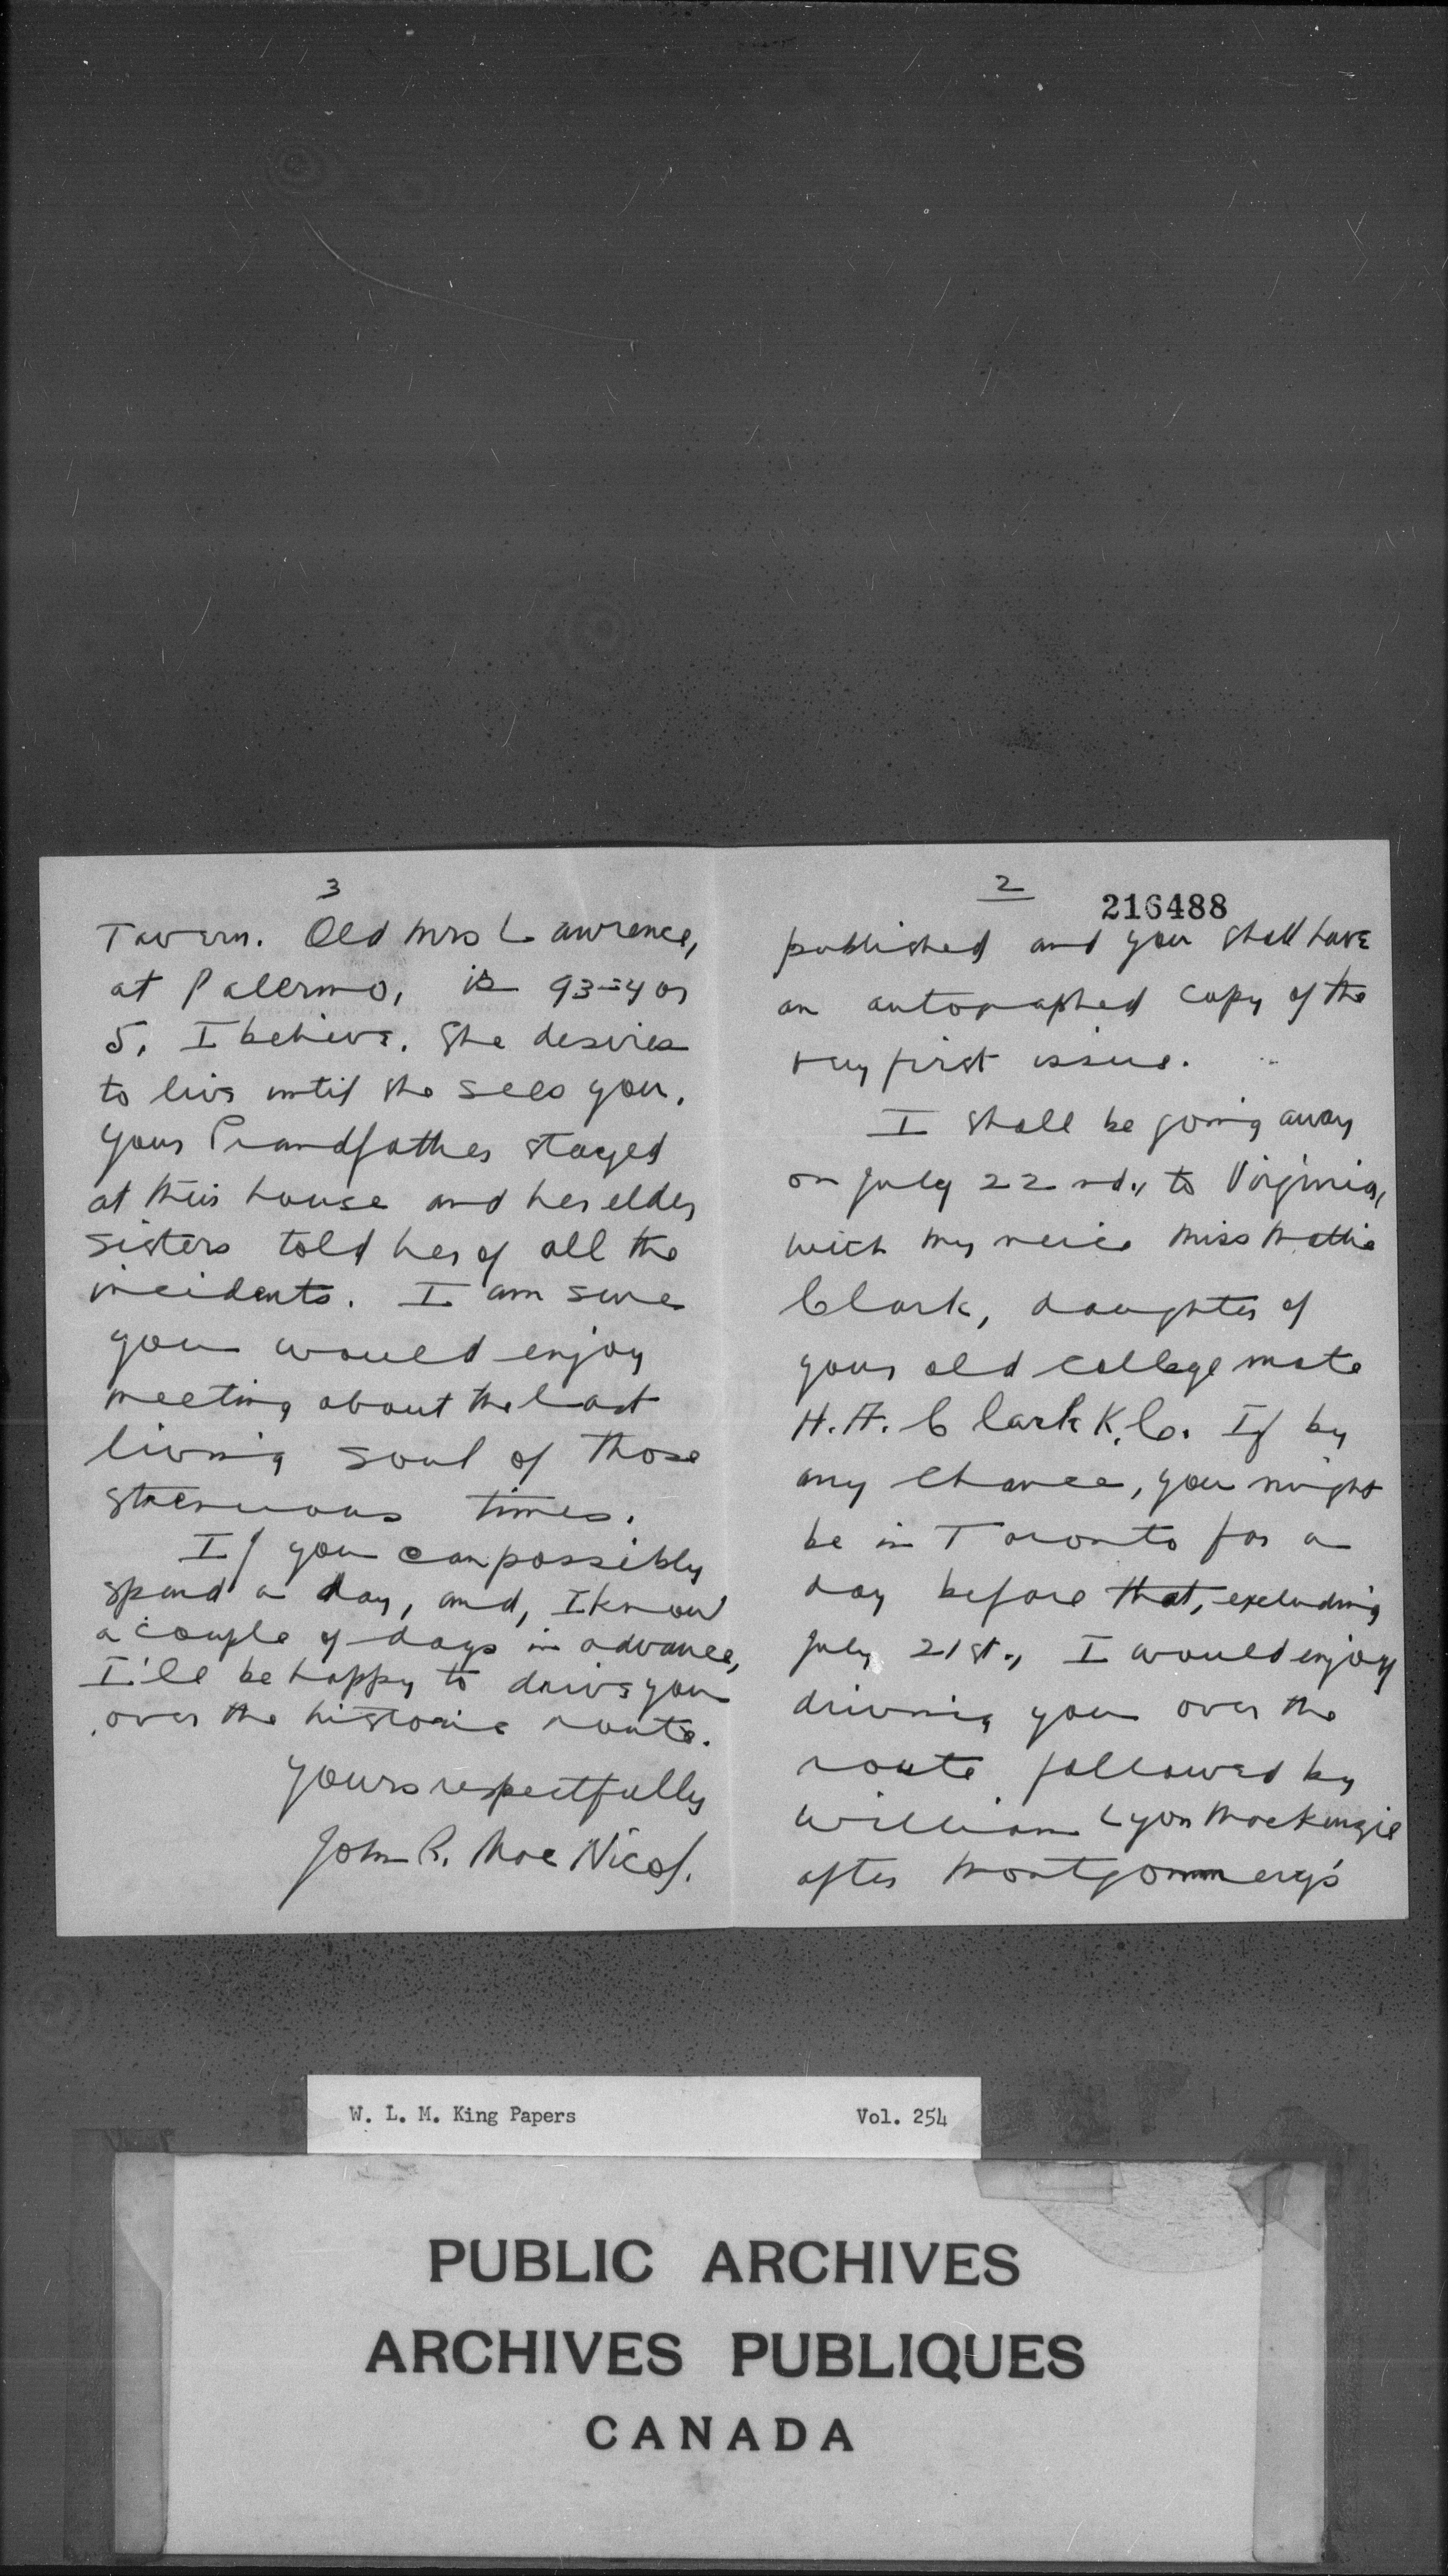 2
216488
published and you shall have
an autographed copy of the
very first issue.
I shall be going away
on July 22nd., to Virginia,
with my neice Miss Mattie
Clark, daughter of
your old college mate
H.A. Clark K.C. If by
any chance, you might
be in Toronto for a
day before that, excluding
July 21st., I would enjoy
driving you over the
route followed by
William Lyon Mackenzie
after Montgommery's
3
Tavern. Old Mrs Lawrence,
at Palermo, is 93-4 or
5, I believe. She desires
to live until she sees you.
Your Grandfather stayed
at their house and her elder
sisters told her of all the
incidents. I am sure
you would enjoy
meeting about the last
living soul of those
strenuous times.
If you can possibly
spend a day, and, I know
a couple of days in advance,
I'll be happy to drive you
over the historic route.
Yours respectfully
John R. MacNicol.
W. L. M. King Papers Vol. 254
PUBLIC ARCHIVES
ARCHIVES PUBLIQUES
CANADA